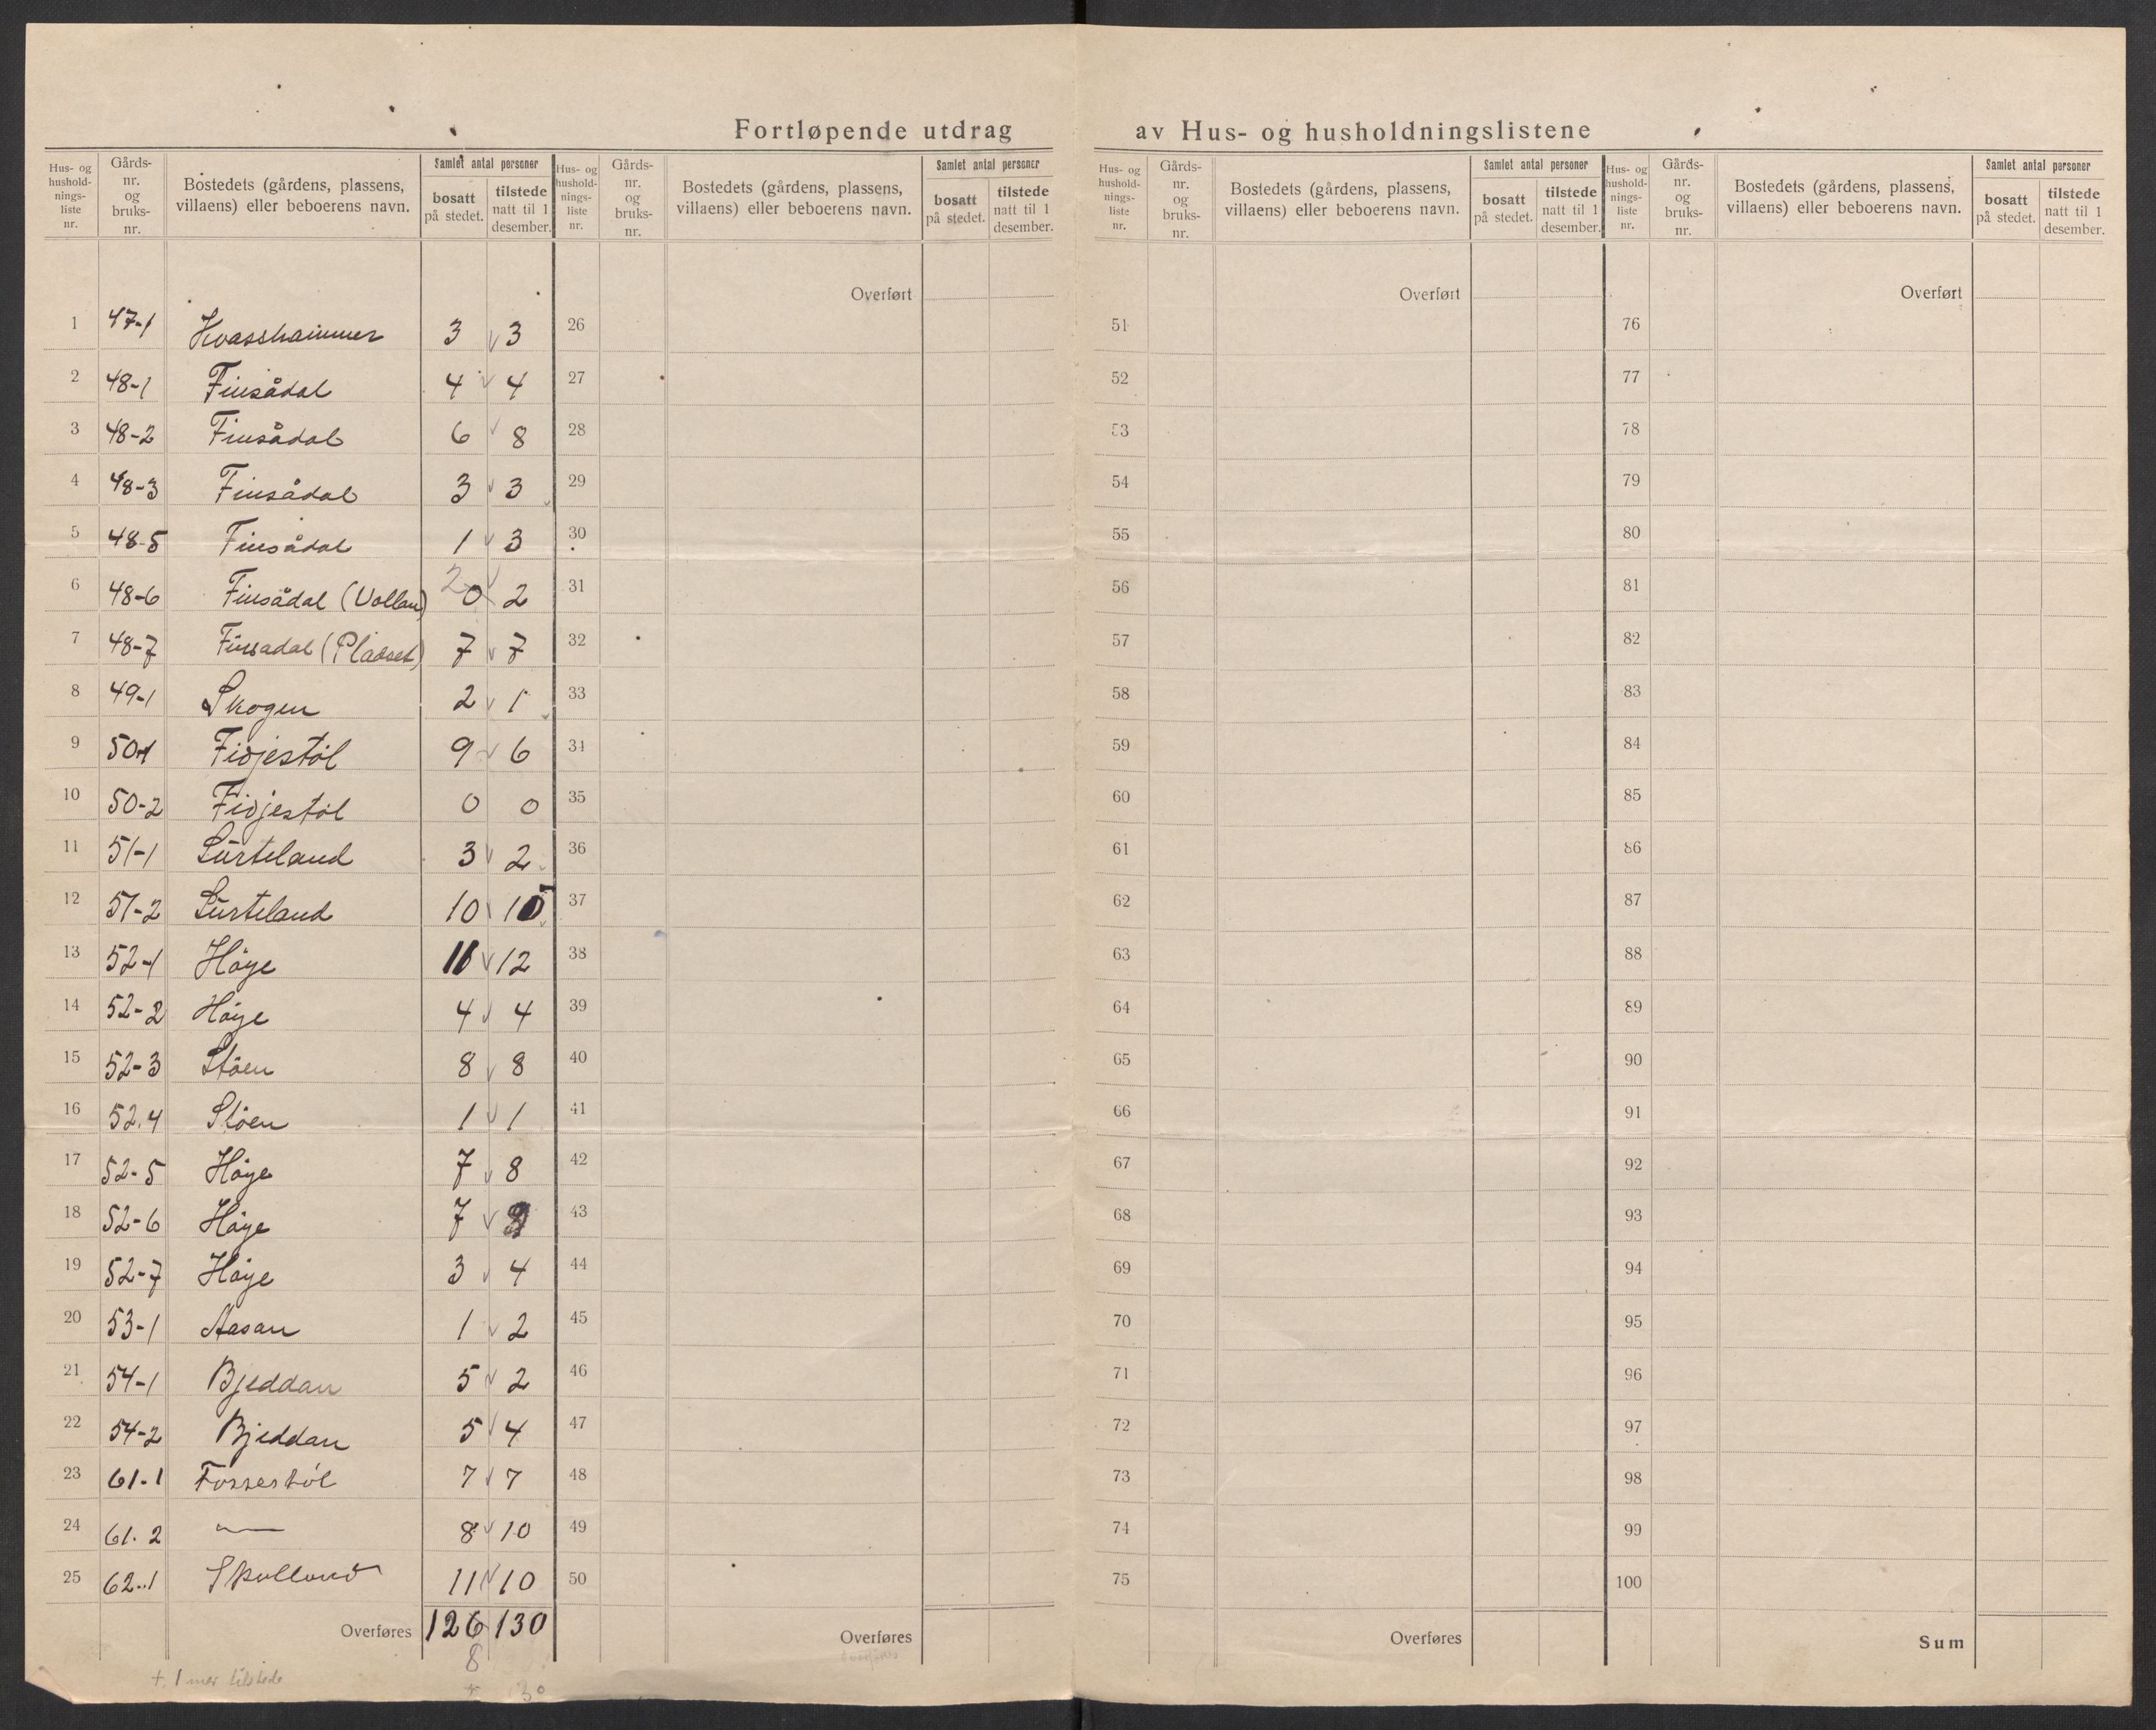 Fortløpende utdrag av Hus- og husholdningslistene
Hus- og husholdnings-liste nr. Gårds-nr. og bruks-nr. Bostedets (gårdens, plassens, villaens) eller beboerens navn. Samlet antal personer bosatt på stedet. tilstede natt til 1 desember.
Hus- og husholdnings-liste nr. Gårds-nr. og bruks-nr. Bostedets (gårdens, plassens, villaens) eller beboerens navn. Samlet antal personer bosatt på stedet. tilstede natt til 1 desember.
Hus- og husholdnings-liste nr. Gårds-nr. og bruks-nr. Bostedets (gårdens, plassens, villaens) eller beboerens navn. Samlet antal personer bosatt på stedet. tilstede natt til 1 desember.
Hus- og husholdnings-liste nr. Gårds-nr. og bruks-nr. Bostedets (gårdens, plassens, villaens) eller beboerens navn. Samlet antal personer bosatt på stedet. tilstede natt til 1 desember.
Overført Overført Overført
1 47-1 Kvasshammer 3 v 3 26 51 76
2 48-1 Finsådal 4 v 4 27 52 77
3 48-2 Finsådal 6 v 8 28 53 78
4 48-3 Finsådal 3 v 3 29 54 79
5 48-5 Finsådal 1 v 3 30 55 80
6 48-6 Finsådal (Vollan) 2 0 v 2 31 56 81
7 48-7 Finsadal (Pladset) 7 v 7 32 57 82
8 49-1 Skogen 2 v 1 33 58 83
9 50-1 Fidjestöl 9 v 6 34 59 84
10 50-2 Fidjestöl 0 0 35 60 85
11 51-1 Lürteland 3 v 2 36 61 86
12 51-2 Lürteland 10 v 10 37 62 87
13 52-1 Höye 11 v 12 38 63 88
14 52-2 Höye 4 v 4 39 64 89
15 52-3 Stöen 8 v 8 40 65 90
16 52.4 Stöen 1 v 1 41 66 91
17 52-5 Höye 7 v 8 42 67 92
18 52-6 Höye 7 v 43 68 93
19 52-7 Höye 3 v 4 44 69 94
20 53-1 Aasan 1 v 2 45 70 95
21 54-1 Bjeddan 5 v 2 46 71 96
22 54-2 Bjeddan 5 v 4 47 72 97
23 61-1 Fossestöl 7 v 7 48 73 98
24 61.2 — 8 v 10 49 74 99
25 62-1 Skolland 11 v 10 50 75 100
Overføres 126 130 Overføres Overføres Sum
8
+ 1 mer tilstede